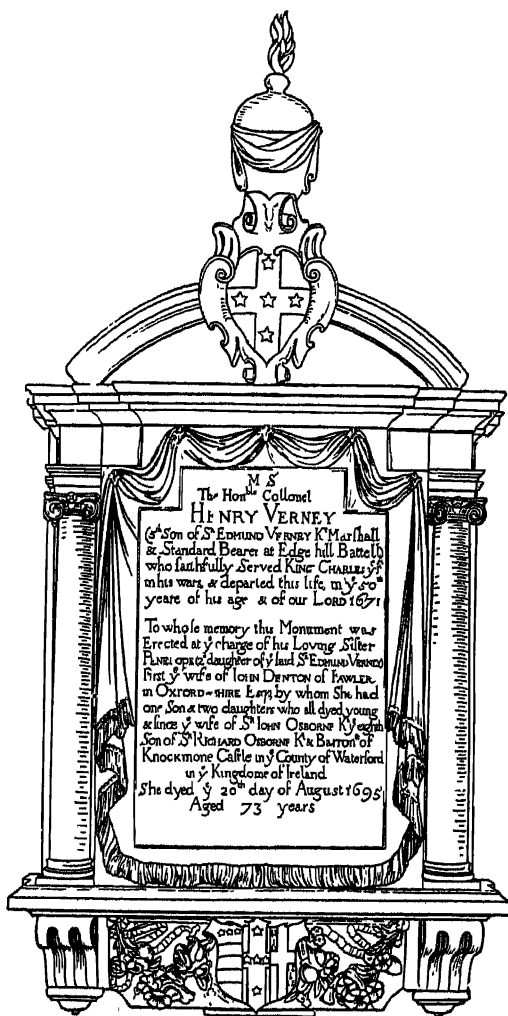 M S
The Honble Collonel
HENRY VERNEY
(3th Son of Sr EDMUND VERNEY Kt Marshall
& Standard Bearer at Edge hill Battell)
who faithfully Served KING CHARLES ye
in his wars, & departed this life, in ye 50th
yeare of his age & of our LORD 1671
To whose memory this Monument was
Erected at ye charge of his Loving Sister
PENELOPE daughter of ye said Sr EDMUND VERNEY
First ye wife of IOHN DENTON of FAWLER
in OXFORD-SHIRE Esqr by whom She had
one Son & two daughters who all dyed young
& since ye wife of Sr IOHN OSBORNE Kt ye eighth
Son of Sr RICHARD OSBORNE Kt & Barronet of
KNOCKMONE Castle in ye County of Waterford
in ye Kingdome of Ireland
She dyed ye 20th day of August 1695
Aged 73 years